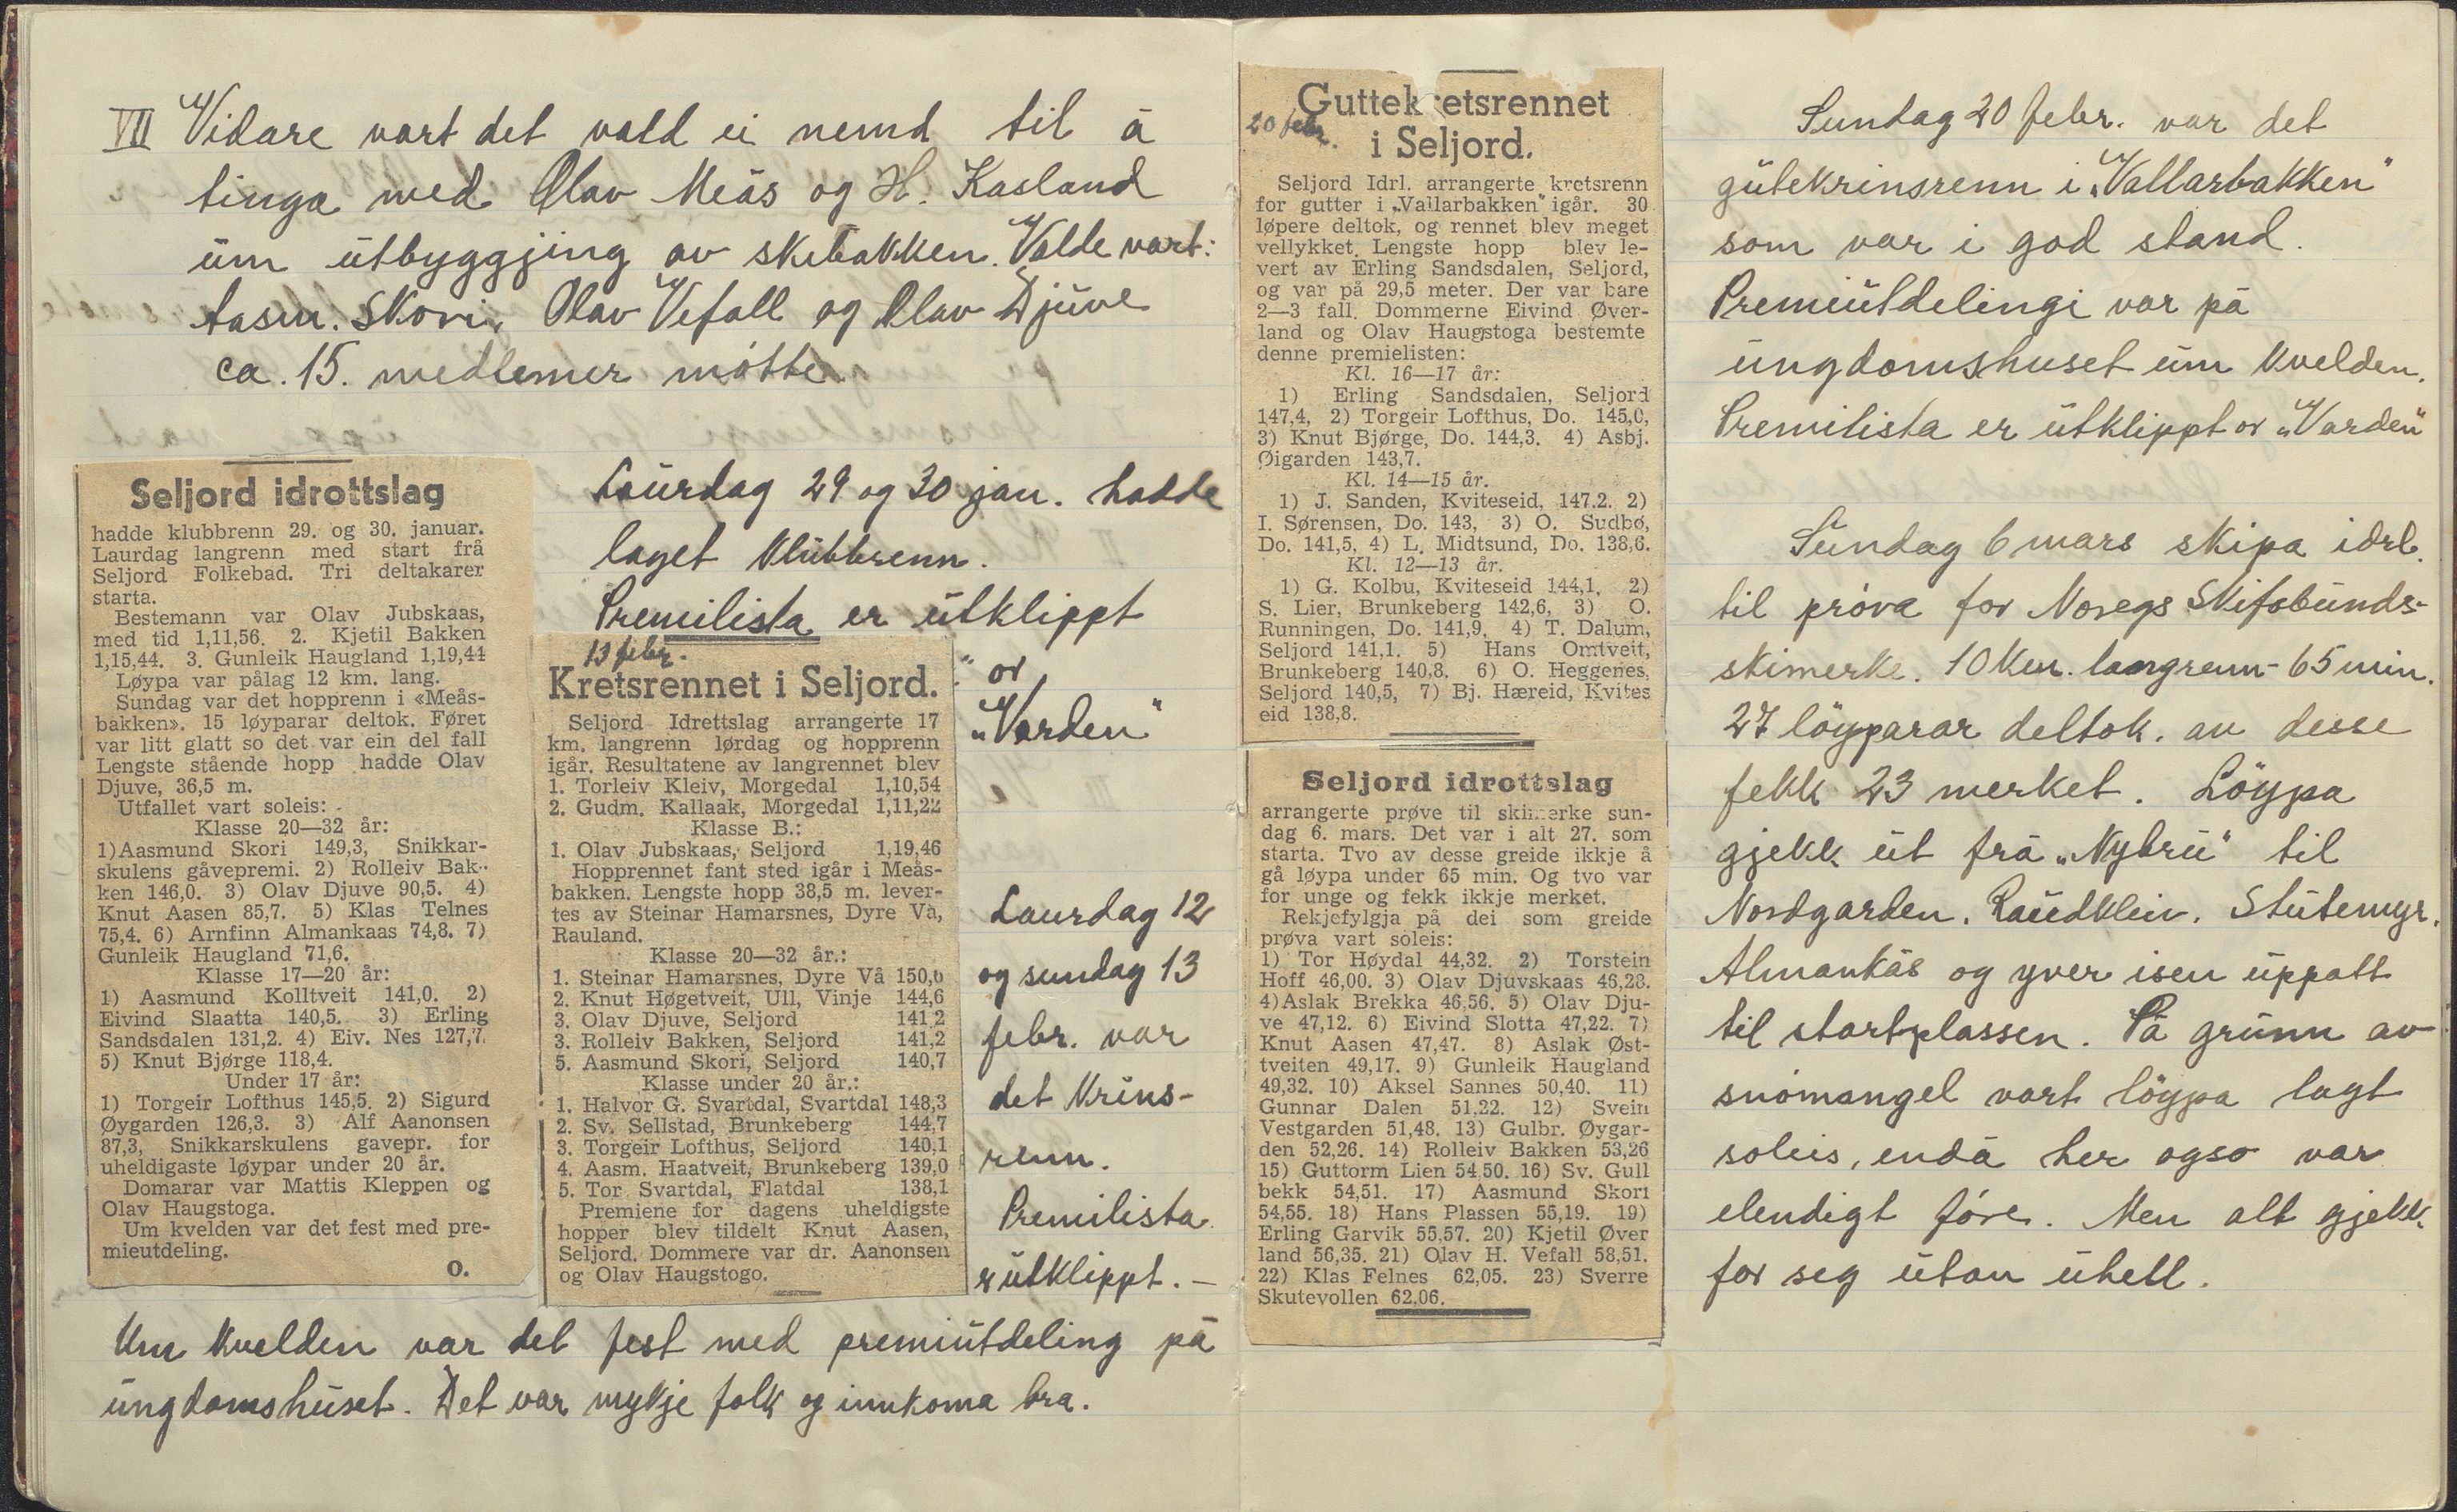 VII Vidare vart det vald ei nemd til å
tinga med Olav Meås og H. Kasland
um utbyggjing av skibakken. Valde vart:
Aasm. Skori, Olav Vefall og Olav Djuve
ca. 15. medlemer møtte.
Laurdag 29 og 30 jan. hadde
laget klubbrenn.
Premilista er utklippt
or
"Varden"
Seljord idrottslag
hadde klubbrenn 29. og 30. januar.
Laurdag langrenn med start frå
Seljord Folkebad. Tri deltakarer
starta.
Bestemann var Olav Jubskaas,
med tid 1,11,56. 2. Kjetil Bakken
1,15,44. 3. Gunleik Haugland 1,19,44
Løypa var pålag 12 km. lang.
Sundag var det hopprenn i «Meås-
bakken». 15 løyparar deltok. Føret
var litt glatt so det var ein del fall
Lengste stående hopp hadde Olav
Djuve, 36,5 m.
Utfallet vart soleis:
Klasse 20—32 år:
1) Aasmund Skori 149,3, Snikkar-
skulens gåvepremi. 2) Rolleiv Bak-
ken 146,0. 3) Olav Djuve 90,5. 4)
Knut Aasen 85,7. 5) Klas Telnes
75,4. 6) Arnfinn Almankaas 74,8. 7)
Gunleik Haugland 71,6.
Klasse 17—20 år:
1) Aasmund Kolltveit 141,0. 2)
Eivind Slaatta 140,5. 3) Erling
Sandsdalen 131,2. 4) Eiv. Nes 127,7.
5) Knut Bjørge 118,4.
Under 17 år:
1) Torgeir Lofthus 145,5. 2) Sigurd
Øygarden 126,3. 3) Alf Aanonsen
87,3, Snikkarskulens gavepr. for
uheldigaste løypar under 20 år.
Domarar var Mattis Kleppen og
Olav Haugstoga.
Um kvelden var det fest med pre-
mieutdeling.
O.
13 febr.
Kretsrennet i Seljord.
Seljord Idrettslag arrangerte 17
km. langrenn lørdag og hopprenn
igår. Resultatene av langrennet blev
1. Torleiv Kleiv, Morgedal 1,10,54
2. Gudm. Kallaak, Morgedal 1,11,22
Klasse B.:
1. Olav Jubskaas, Seljord 1,19,46
Hopprennet fant sted igår i Meås-
bakken. Lengste hopp 38,5 m. lever-
tes av Steinar Hamarsnes, Dyre Va,
Rauland.
Klasse 20—32 år.:
1. Steinar Hamarsnes, Dyre Vå 150,0
2. Knut Høgetveit, Ull, Vinje 144,6
3. Olav Djuve, Seljord 141,2
3. Rolleiv Bakken, Seljord 141,2
5. Aasmund Skori, Seljord 140,7
Klasse under 20 år.:
1. Halvor G. Svartdal, Svartdal 148,3
2. Sv. Sellstad, Brunkeberg 144,7
3. Torgeir Lofthus, Seljord 140,1
4. Aasm. Haatveit, Brunkeberg 139,0
5. Tor Svartdal, Flatdal 138,1
Premiene for dagens uheldigste
hopper blev tildelt Knut Aasen,
Seljord. Dommere var dr. Aanonsen
og Olav Haugstogo.
Laurdag 12
og sundag 13
febr. var
det krins-
renn.
Premilista
er utklippt. —
Um kvelden var det fest med premiutdeling på
ungdomshuset. Det var mykje folk og innkoma bra.
20 febr.
Guttekretsrennet
i Seljord.
Seljord Idrl. arrangerte kretsrenn
for gutter i „Vallarbakken" igår. 30
løpere deltok, og rennet blev meget
vellykket. Lengste hopp blev le-
vert av Erling Sandsdalen, Seljord,
og var på 29,5 meter. Der var bare
2—3 fall. Dommerne Eivind Øver-
land og Olav Haugstoga bestemte
denne premielisten:
Kl. 16—17 år:
1) Erling Sandsdalen, Seljord
147,4, 2) Torgeir Lofthus, Do. 145,0,
3) Knut Bjørge, Do. 144,3. 4) Asbj.
Øigarden 143,7.
Kl. 14—15 år.
1) J. Sanden, Kviteseid, 147.2. 2)
I. Sørensen, Do. 143, 3) O. Sudbø,
Do. 141,5, 4) L. Midtsund, Do. 138,6.
Kl. 12—13 år.
1) G. Kolbu, Kviteseid 144,1, 2)
S. Lier, Brunkeberg 142,6, 3) O.
Runningen, Do. 141,9, 4) T. Dalum,
Seljord 141,1. 5) Hans Omtveit,
Brunkeberg 140,8. 6) O. Heggenes,
Seljord 140,5, 7) Bj. Hæreid, Kvites
eid 138,8.
Seljord idrottslag
arrangerte prøve til skimerke sun-
dag 6. mars. Det var i alt 27. som
starta. Tvo av desse greide ikkje å
gå løypa under 65 min. Og tvo var
for unge og fekk ikkje merket.
Rekjefylgja på dei som greide
prøva vart soleis:
1) Tor Høydal 44,32. 2) Torstein
Hoff 46,00. 3) Olav Djuvskaas 46,28.
4) Aslak Brekka 46,56. 5) Olav Dju-
ve 47,12. 6) Eivind Slotta 47,22. 7)
Knut Aasen 47,47. 8) Aslak Øst-
tveiten 49,17. 9) Gunleik Haugland
49,32. 10) Aksel Sannes 50,40. 11)
Gunnar Dalen 51,22. 12) Svein
Vestgarden 51,48. 13) Gulbr. Øygar-
den 52,26. 14) Rolleiv Bakken 53,26
15) Guttorm Lien 54,50. 16) Sv. Gull
bekk 54,51. 17) Aasmund Skori
54,55. 18) Hans Plassen 55,19. 19)
Erling Garvik 55,57. 20) Kjetil Øver
land 56,35. 21) Olav H. Vefall 58,51.
22) Klas Felnes 62,05. 23) Sverre
Skutevollen 62,06.
Sundag 20 febr. var det
gutekrinsrenn i „Vallarbakken"
som var i god stand.
Premiutdelingi var på
ungdomshuset um kvelden.
Premilista er utklippt or „Varden"
Sundag 6 mars skipa idrl.
til prøva for Noregs Skifobunds-
skimerke. 10 km. langrenn - 65 min.
27 löyparar deltok. av desse
fekk 23 merket. Löypa
gjekk ut frå „Nybru" til
Nordgarden, Raudkleiv, Stutemyr,
Almankås og yver isen uppatt
til startplassen. På grunn av
snømangel vart löypa lagt
soleis, endå her ogso var
elendigt före. Men alt gjekk
for seg utan uhell.